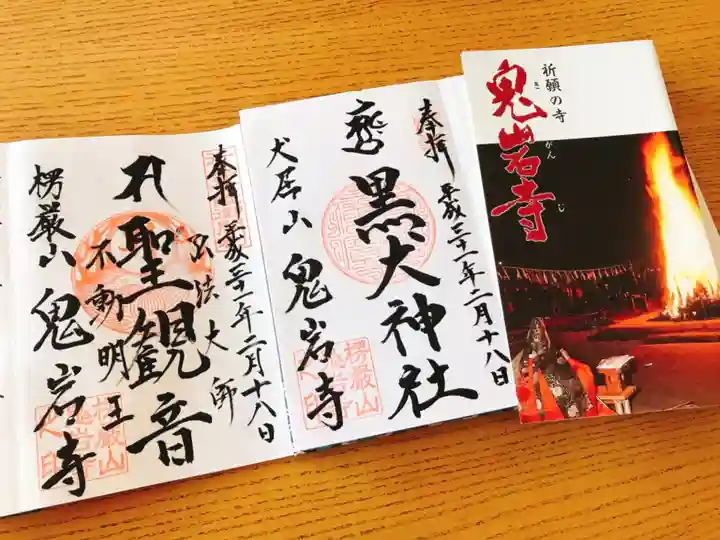 奉拝
平成三十一年二月十八日
弘法大師
聖観音
不動明王
楞厳山
鬼岩寺
奉拝
平成三十一年二月十八日
黒犬神社
犬居山
鬼岩寺
楞厳山
祈願の寺
鬼岩寺
き
がん
じ